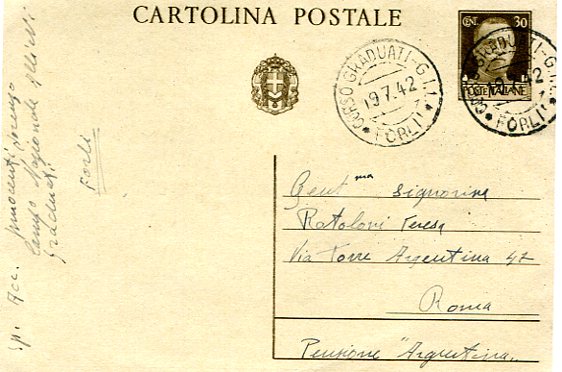 CARTOLINA POSTALE
CENT. 30
POSTE ITALIANE
CORSO GRADUATI - G.I.L.
19.7.42
FORLI'
CORSO GRADUATI - G.I.L.
19.7.42
FORLI'
Gent ma Signorina
Rotoloni Teresa
Via Torre Argentina 47
Roma
Pensione "Argentina"
Sp. Acc. Innocenti Lorenzo
Campo Nazionale
Graduati
Forlì